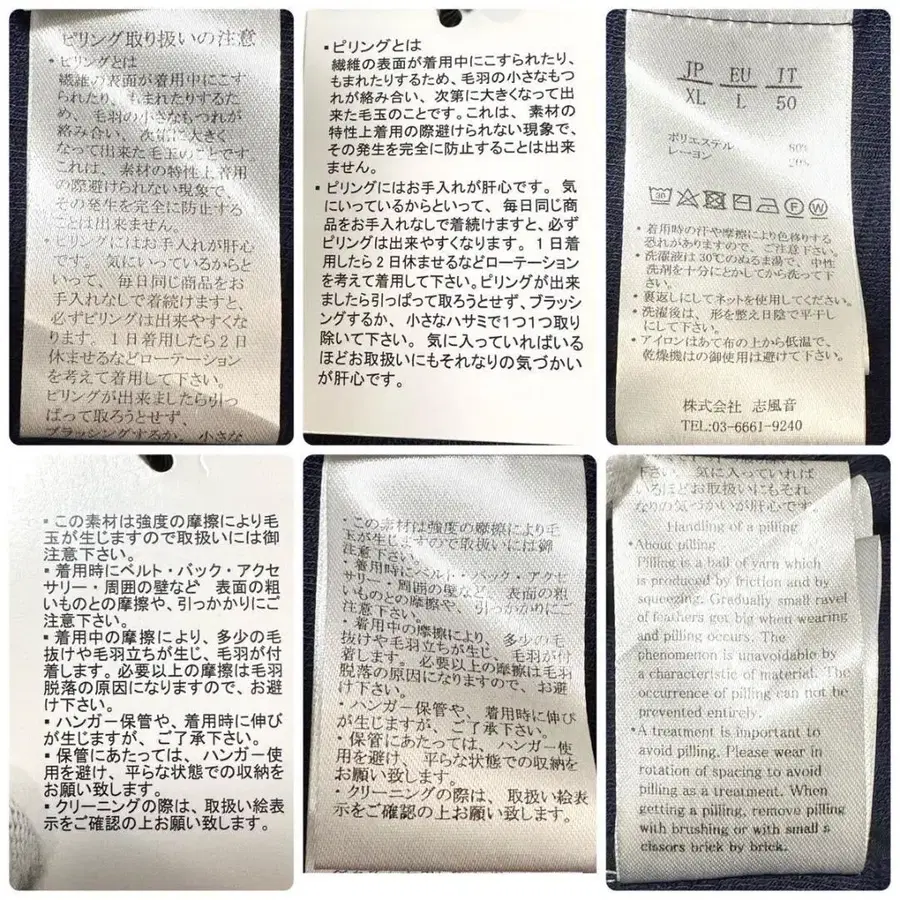 ピリング取り扱いの注意
・ピリングとは
繊維の表面が着用中にこす
られたり、もまれたりするた
め、毛羽の小さなもつれが
絡み合い、次第に大きく
なって出来た毛玉のことです。
これは、素材の特性上着用
の際避けられない現象で、
その発生を完全に防止する
ことは出来ません。
・ピリングにはお手入れが肝心
です。気にいっているからと
いって、毎日同じ商品をお
手入れなしで着続けますと、
必ずピリングは出来やすくな
ります。1日着用したら2日
休ませるなどローテーション
を考えて着用して下さい。
ピリングが出来ましたら引っ
ぱって取ろうとせず、
ブラッシングするか、小さな
▪ピリングとは
繊維の表面が着用中にこすられたり、
もまれたりするため、毛羽の小さなもつ
れが絡み合い、次第に大きくなって出
来た毛玉のことです。これは、素材の
特性上着用の際避けられない現象で、
その発生を完全に防止することは出来
ません。
▪ピリングにはお手入れが肝心です。気
にいっているからといって、毎日同じ商
品をお手入れなしで着続けますと、必ず
ピリングは出来やすくなります。1日着
用したら2日休ませるなどローテーション
を考えて着用して下さい。ピリングが出来
ましたら引っぱって取ろうとせず、ブラッシ
ングするか、小さなハサミで1つ1つ取り
除いて下さい。気に入っていればいる
ほどお取扱いにもそれなりの気づかい
が肝心です。
JP EU IT
XL L 50
ポリエステル 80%
レーヨン 20%
30
F W
・着用時の汗や摩擦により色移りする
恐れがありますので、ご注意下さい。
・洗濯液は30℃のぬるま湯で、中性
洗剤を十分にとかしてから洗って下
さい。
・裏返しにしてネットを使用してください。
・洗濯後は、形を整え日陰で平干し
にして下さい。
・アイロンはあて布の上から低温で、
乾燥機はの御使用は避けて下さい。
株式会社 志風音
TEL:03-6661-9240
▪この素材は強度の摩擦により毛
玉が生じますので取扱いには御
注意下さい。
▪着用時にベルト・バック・アクセ
サリー・周囲の壁など 表面の粗
いものとの摩擦や、引っかかりにご
注意下さい。
▪着用中の摩擦により、多少の毛
抜けや毛羽立ちが生じ、毛羽が付
着します。必要以上の摩擦は毛羽
脱落の原因になりますので、お避
け下さい。
▪ハンガー保管や、着用時に伸び
が生じますが、ご了承下さい。
▪保管にあたっては、ハンガー使
用を避け、平らな状態での収納を
お願い致します。
▪クリーニングの際は、取扱い絵表
示をご確認の上お願い致します。
・この素材は強度の摩擦により毛
玉が生じますので取扱いには御
注意下さい。
・着用時にベルト・バック・アクセ
サリー・周囲の壁など、表面の粗
いものとの摩擦や、引っかかりにご
注意下さい。
・着用中の摩擦により、多少の毛
抜けや毛羽立ちが生じ、毛羽が付
着します。必要以上の摩擦は毛羽
脱落の原因になりますので、お避
け下さい。
・ハンガー保管や、着用時に伸び
が生じますが、ご了承下さい。
・保管にあたっては、ハンガー使
用を避け、平らな状態での収納を
お願い致します。
・クリーニングの際は、取扱い絵表
示をご確認の上お願い致します。
下さい。気に入っていれば
いるほどお取扱いにもそれ
なりの気づかいが肝心です。
Handling of a pilling
・About pilling
Pilling is a ball of yarn which
is produced by friction and by
squeezing. Gradually small ravel
of feathers got big when wearing
and pilling occurs. The
phenomenon is unavoidable by
a characteristic of material. The
occurrence of pilling can not be
prevented entirely.
・A treatment is important to
avoid pilling. Please wear in
rotation of spacing to avoid
pilling as a treatment. When
getting a pilling, remove pilling
with brushing or with small s
cissors brick by brick.